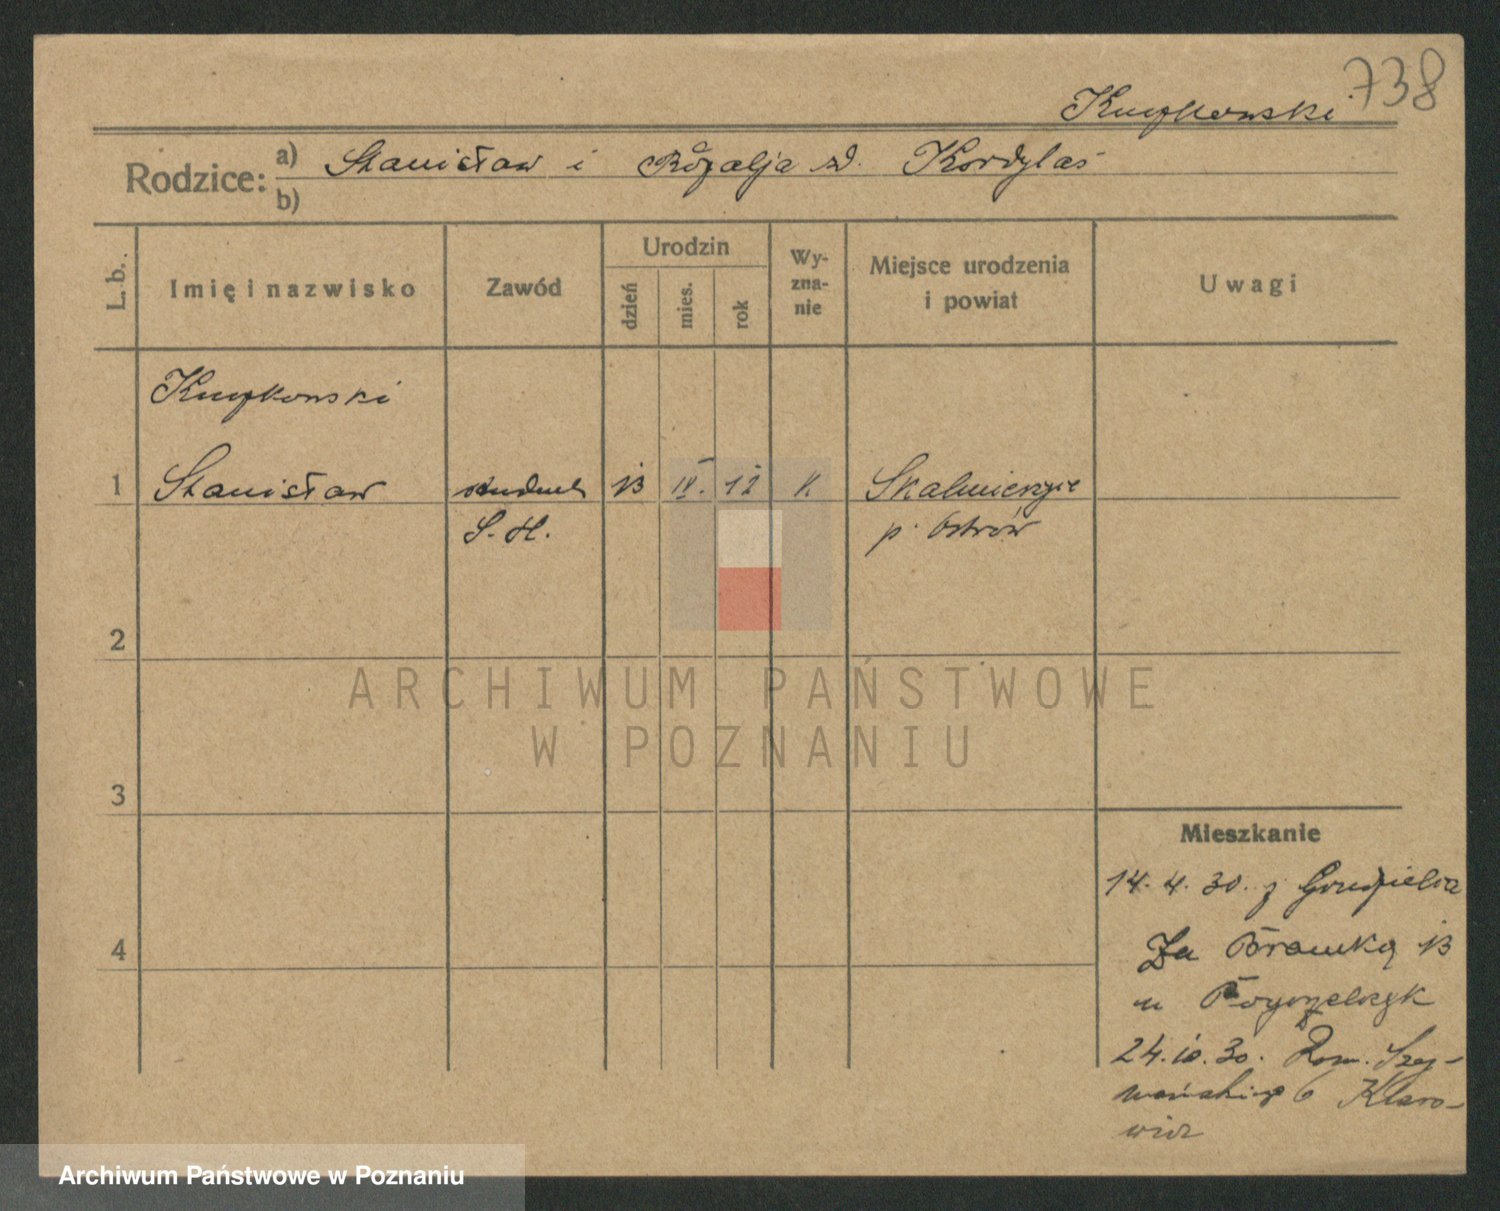 738
Rodzice: a) Stanisław i Rozalja zd. Kordylas
b)
L. b. Imię i nazwisko Zawód Urodzin dzień mies. rok Wyznanie Miejsce urodzenia i powiat Uwagi
1 Stanisław student 13 IV. 12 K Skalmierzyce
S. H. p. Ostrów
2
ARCHIWUM PAŃSTWOWE
W POZNANIU
3
Mieszkanie
14. 4. 30. z
4
Za Bramką 13
u
24. 10. 30. Rom. Szy-
mańskiego 6
Archiwum Państwowe w Poznaniu